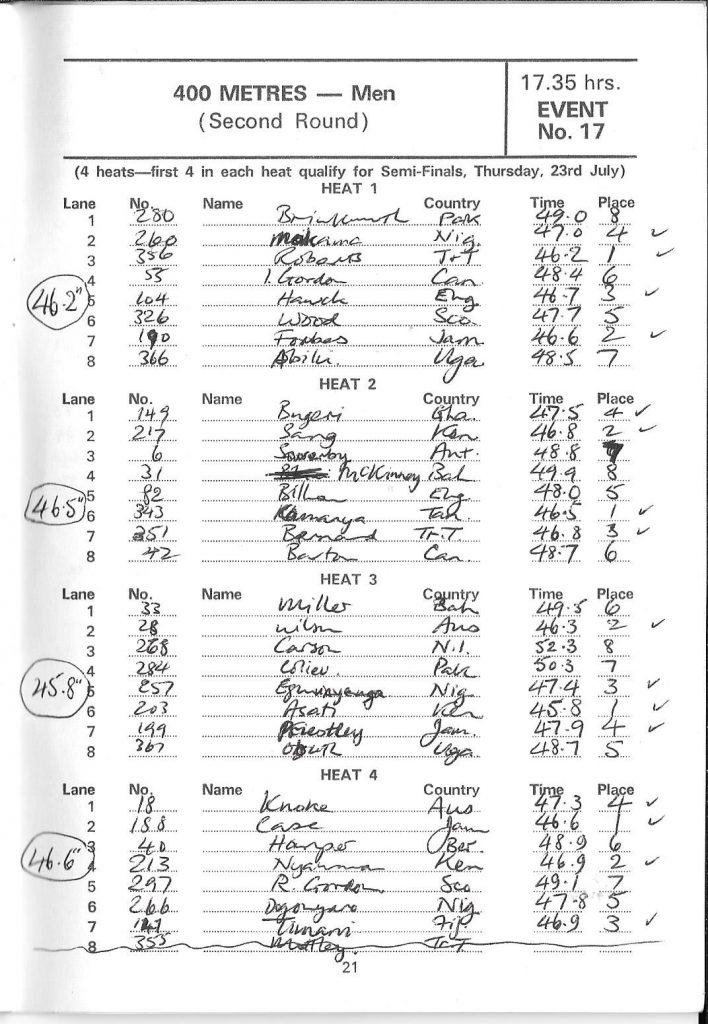 400 METRES — Men
(Second Round)
17.35 hrs.
EVENT
No. 17
(4 heats—first 4 in each heat qualify for Semi-Finals, Thursday, 23rd July)
HEAT 1
Lane No. Name Country Time Place
1 280 Pak 49.0 8
2 260 Makama Nig. 47.0 4 ✓
3 356 Roberts T+T 46.2 1 ✓
4 55 I. Gordon Can 48.4 6
46.2"
5 104 Hauck Eng 46.7 3 ✓
6 326 Wood Sco. 47.7 5
7 190 Forbes Jam 46.6 2 ✓
8 366 Abilu. Uga 48.5 7
HEAT 2
Lane No. Name Country Time Place
1 149 Bugeri Gha. 47.5 4 ✓
2 217 Sang Ken 46.8 2 ✓
3 6 Ant. 48.8 7
4 31 McKinney Bah 49.9 8
46.5"
5 82 Billham Eng 48.0 5
6 343 Kamanya Tan 46.5 1 ✓
7 351 Barnard Tr.T 46.8 3 ✓
8 42 Barton Can. 48.7 6
HEAT 3
Lane No. Name Country Time Place
1 33 Miller Bah 49.5 6
2 28 Wilson Aus 46.3 2 ✓
3 268 Carson N.I. 52.3 8
4 284 Pak 50.3 7
45.8"
5 257 Nig 47.4 3 ✓
6 203 Asati Ken 45.8 1 ✓
7 199 Priestley Jam. 47.9 4 ✓
8 367 Uga 48.7 5
HEAT 4
Lane No. Name Country Time Place
1 18 Knoke Aus 47.3 4 ✓
2 188 Case Jam 46.6 1 ✓
3 40 Harper Ber. 48.9 6
46.6"
4 213 Nyamma Ken 46.9 2 ✓
5 297 R. Gordon Sco 49.1 7
6 266 Dogonyaro Nig 47.8 5
7 Tunani Fij. 46.9 3 ✓
8 355 Mottley Tr.T
21